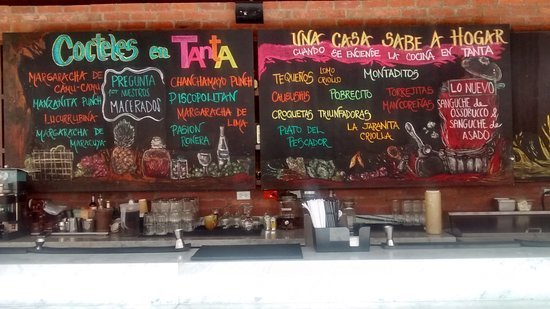 Cocteles en TANTA
MARGARACHA DE
CAMU-CAMU
MANZANITA PUNCH
LUCURRUBINA
MARGARACHA DE
MARACUYA
PREGUNTA
POR NUESTROS
MACERADOS
CHANCHAMAYO PUNCH
PISCOPOLITAN
MARGARACHA DE
LIMA
PASION
UNA CASA SABE A HOGAR
CUANDO SE ENCIENDE LA COCINA EN TANTA
TEQUEÑOS LOMO
CRIOLLO
CAUSUSHIS
CROQUETAS TRIUNFADORAS
PLATO DEL
PESCADOR
MONTADITOS
POBRECITO
LA JARANITA
CRIOLLA
TORREJITAS
MANCOREÑAS
LO NUEVO
SANGUCHE de
OSSOBUCCO &
SANGUCHE de
ASADO